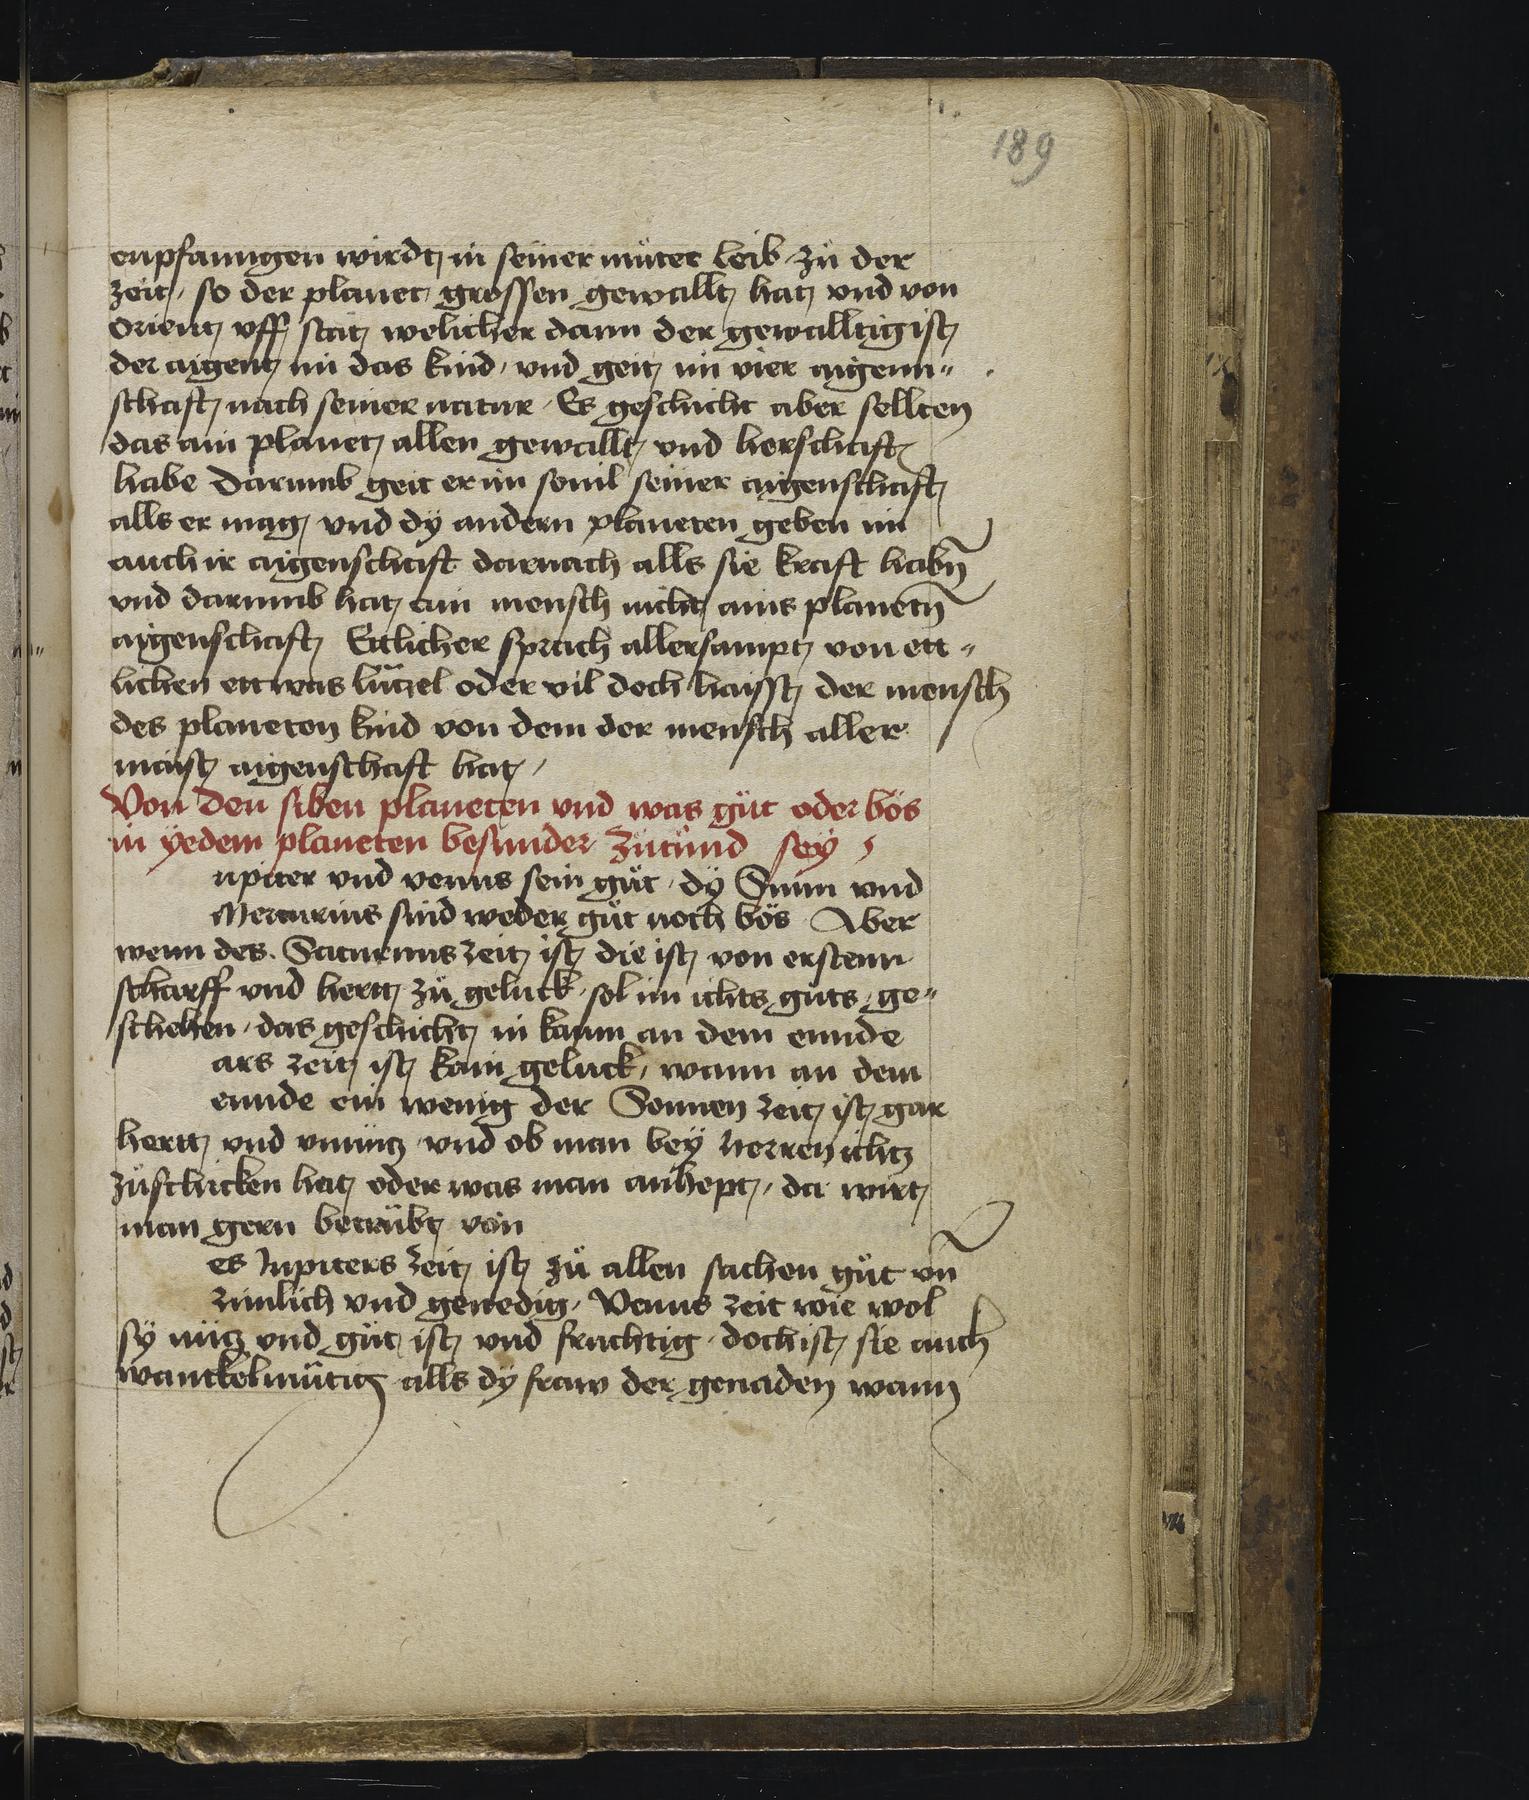 189
enpfanngen wirdt in seiner můter leib zů der
zeit / so der planet grossen gewallt hat vnd von
Orient vff stat welicher dann der gewalltigist
der aigent im das kind / vnd geit im vier aigenn=
schaft nach seiner natur · Es geschicht aber sellten
das ain planet allen gewallt vnd herschaft
habe Darumb geit er im souil seiner aigenschaft
alls er mag vnd dÿ andern planeten geben im
auch ir aigenschaft darnach alls sie kraft habn̄
vnd darumb hat ain mensch nicht ains planetn̄
aigenschaft Ettlicher sprach allersampt von ett=
lichen ettwas lützel oder vil doch haisst der mensch
des planeten kind von dem der mensch aller
maist aigenschaft hat /
Von den siben planeten vnd was gůt oder bös
in yedem planeten besunder zůtůnd seÿ
upiter vnd venus sein gůt · dÿ Sunn vnd
Mercurius sind weder gůt noch bös Aber
wenn des Saturnus zeit ist die ist von erstenn
scharff vnd hertt zů geluck · sol im ichts gůts ge=
schehen · das geschicht in kaum an dem ennde
ars zeit ist kain geluck / wann an dem
ennde ein wenig der Sonnen zeit ist gar
hertt vnd vnnütz vnd ob man beÿ herren ichtz
zůschicken hat oder was man anhept / da wirt
man gern betrübt von
es Jupiters zeit ist zů allen sachen gůt vn̄
zimlich vnd genedig / Venus zeit wie wol
sÿ nütz vnd gůt ist vnd fruchtig · doch ist sie auch
wanckelmůtig alls dÿ fraw der genaden wann